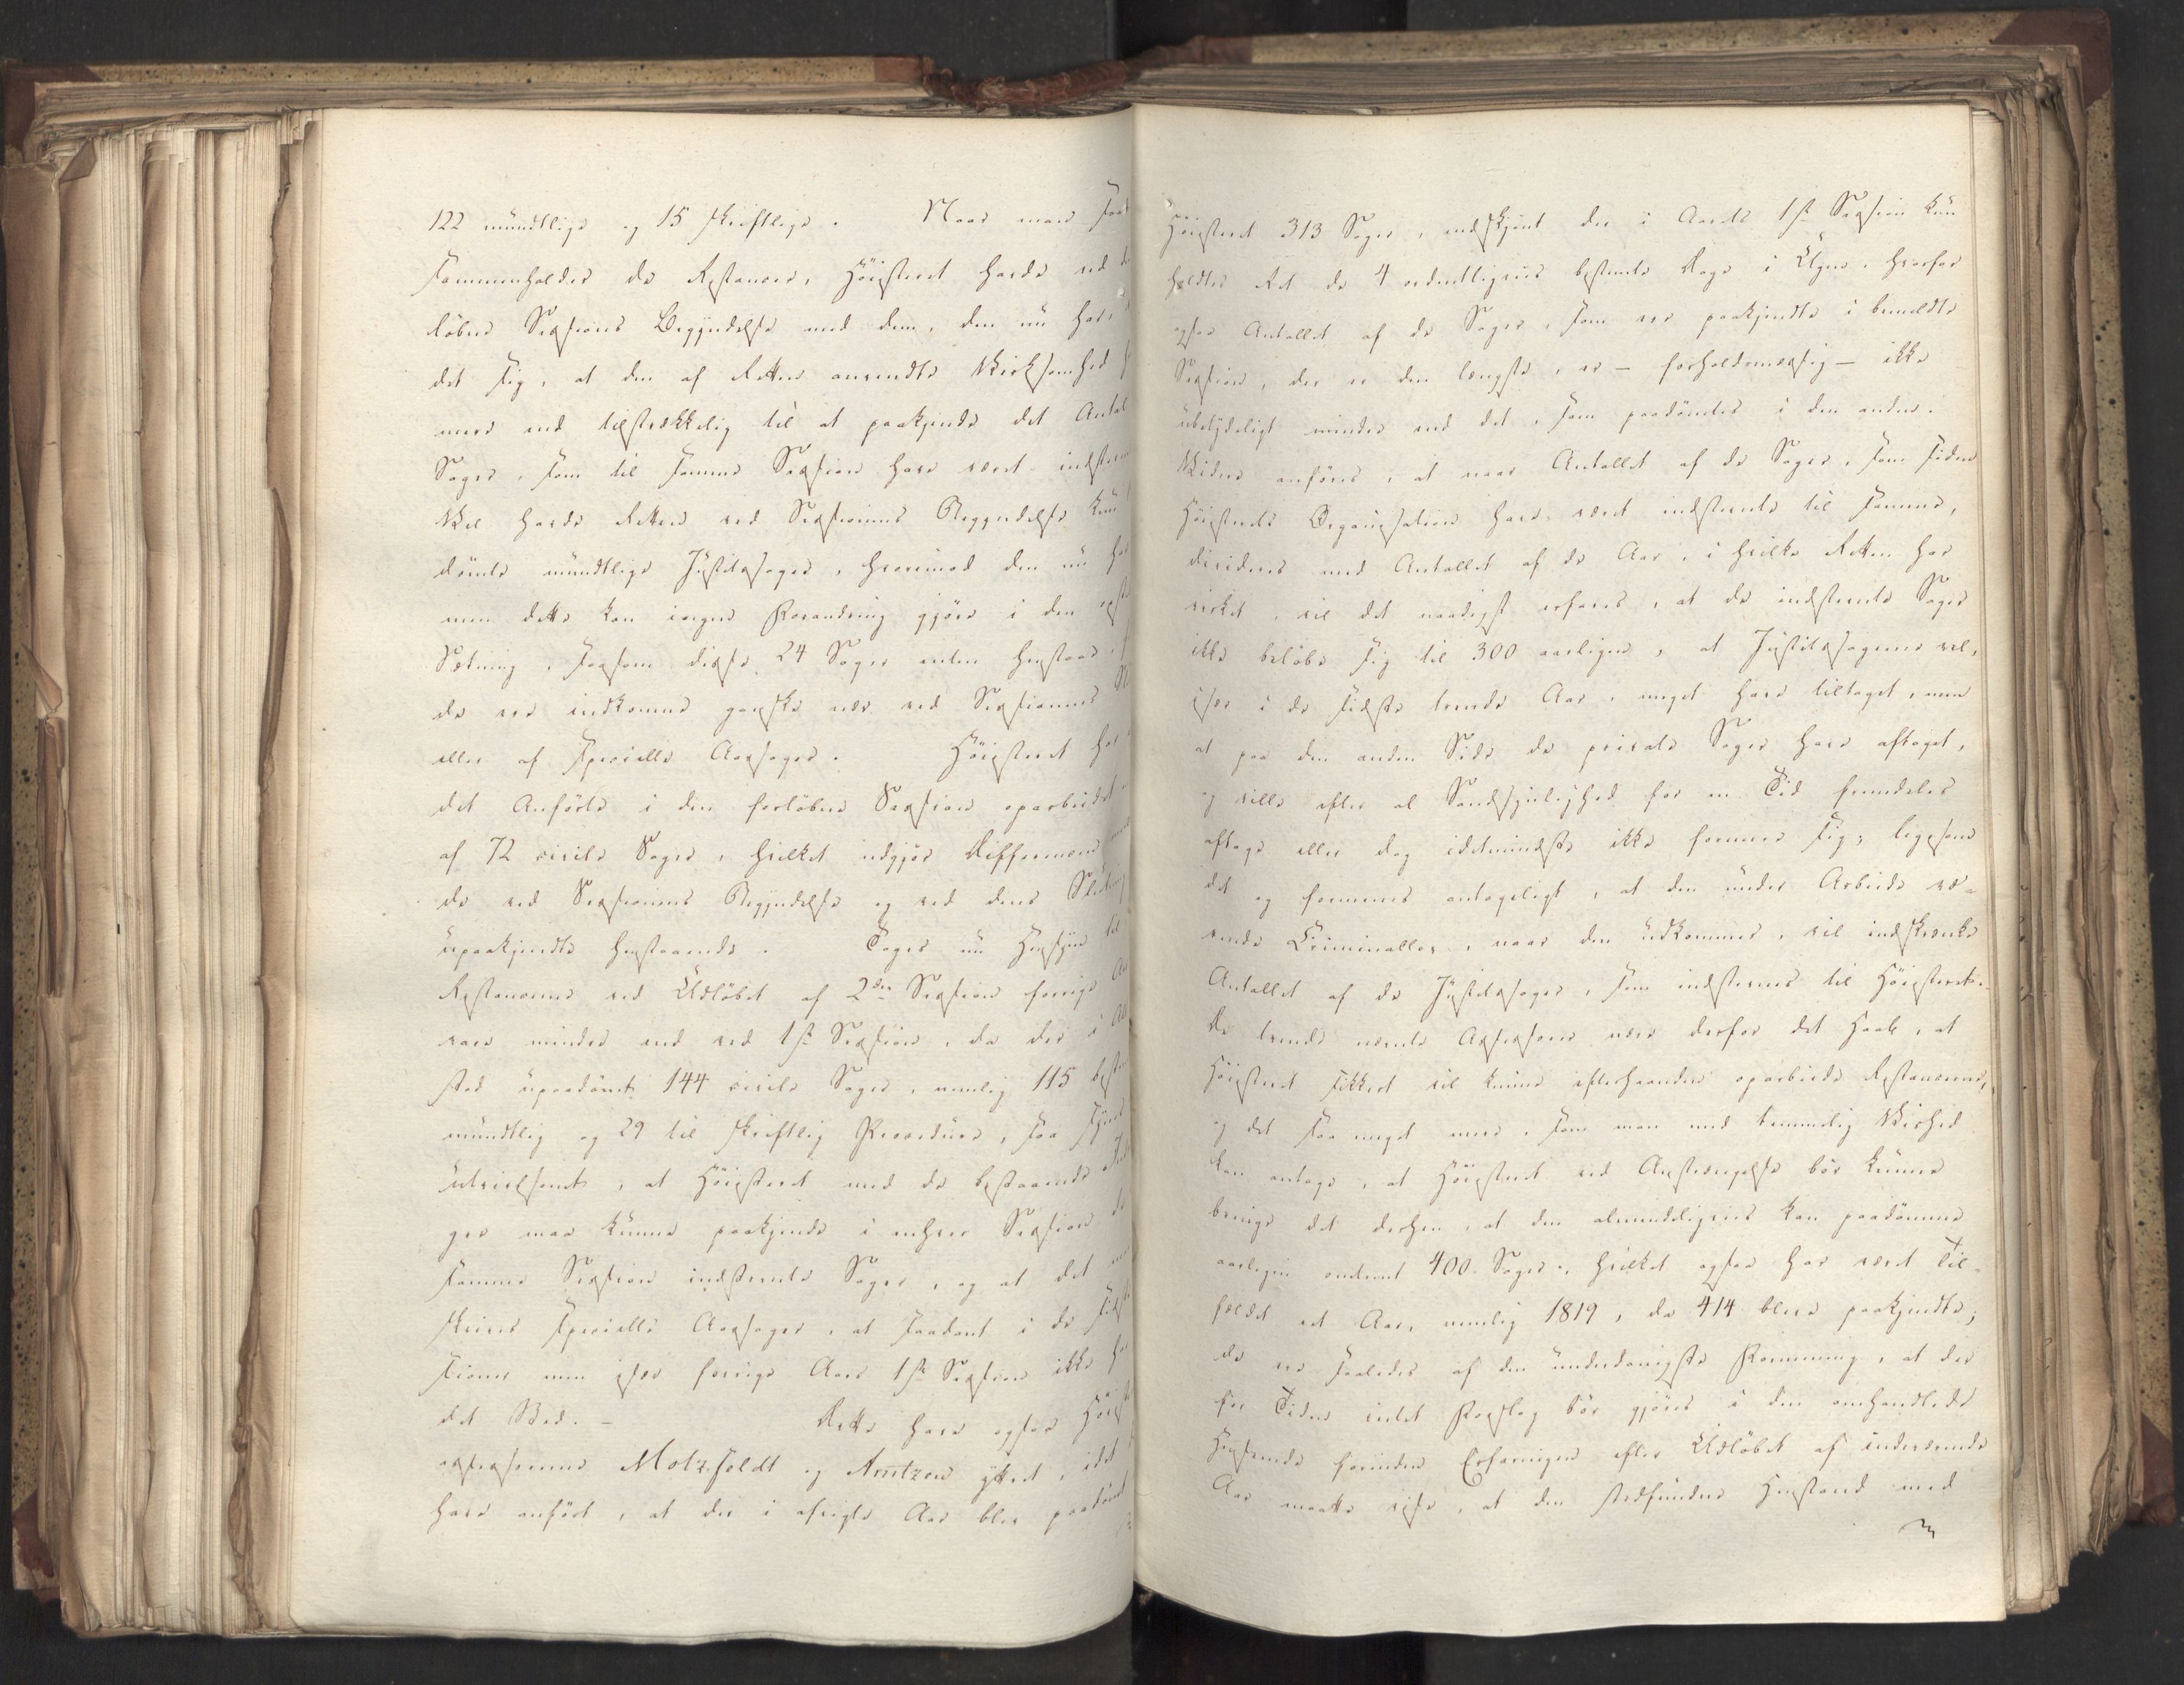 122 mundtlige og 15 skriftlige. Naar man
sammenholder de Restancer, Höiesteret havde ved
löbne Sessions Begyndelse med dem, den nu har,
det sig, at den af Retten anvendte Virksomhed
mere end tilstrækkelig til at paakjende det Antal
Sager, som til samme Session have været indstevn
Vel havde Retten ved Sessionens Begyndelse kun
dömte mundtlige Justitssager, hvorimod den nu har
men dette kan ingen Forandring gjöre i den
Sætning, saasom disse 24 Sager enten henstaae,
de ere indkomne ganske nær ved Sessionens
eller af specielle Aarsager. Höiesteret har
det Anförte i den forlöbne Session oparbeidet
af 72 civile Sager, hvilket udgjör Differencen
de ved Sessionens Begyndelse og ved dens Slutning
upaakjendte henstaaende. Tages nu Hensyn til
Restancerne ved Udlöbet af 2den Session forrige
vare mindre end ved 1ste Session, da der i
stod upaadömt 144 civile Sager, nemlig 115
mundtlig og 29 til skriftlig Procedure, saa synes
utvivlsomt, at Höiesteret med de bestaaende
ger maa kunne paakjende i enhver Session de
samme Session indstevnte Sager, og at det
skrives specielle Aarsager, at saadant i de
sioner men især forrige Aars 1ste Session ikke
det Sted. – Dette have ogsaa
assessorerne Motzfeldt og Arntzen yttret, idet
have anfört, at der i afvigte Aar blev paadömt
Höiesteret 313 Sager, endskjönt der i Aarets 1ste Session kun
holdtes Ret de 4 ordentligviis bestemte Dage i Ugen, hvorfor
ogsaa Antallet af de Sager, som ere paakjendte i bemeldte
Session, der er den længste, er – forholdsmæssig – ikke
ubetydeligt mindre end det, som paadömtes i den anden.
Videre anföres, at naar Antallet af de Sager, som siden
Höiesterets Organisation have været indstevnte til samme,
divideres med Antallet af de Aar, i hvilke Retten har
virket, vil det naadigst erfares, at de indstevnte Sager
ikke belöbe sig til 300 aarligen, at Justitssagerne vel,
især i de sidste trende Aar, meget have tiltaget, men
at paa den anden Side de private Sager have aftaget,
og ville efter al Sandsynlighed for en Tid fremdeles
aftage eller dog idetmindste ikke formere sig; ligesom
det og formenes antageligt, at den under Arbeide væ-
rende Criminallov, naar den udkommer, vil indskrænke
Antallet af de Justitssager, som indstevnes til Höiesteret.
De trende nævnte Assessorer nære derfor det Haab, at
Höiesteret sikkert vil kunne efterhaanden oparbeide Restancerne,
og det saa meget mere, som man med temmelig Vished
kan antage, at Höiesteret ved Anstrengelse bör kunne
bringe det derhen, at den almindeligviis kan paadömme
aarligen omtrent 400 Sager, hvilket ogsaa har været Til-
fældet eet Aar, nemlig 1819, da 414 bleve paakjendte;
de ere saaledes af den underdanigste Formening, at der
for Tiden intet Forslag bör gjöres i den omhandlede
Henseende forinden Erfaringen efter Udlöbet af indeværende
Aar maatte vise, at den stedfundne Henstand med